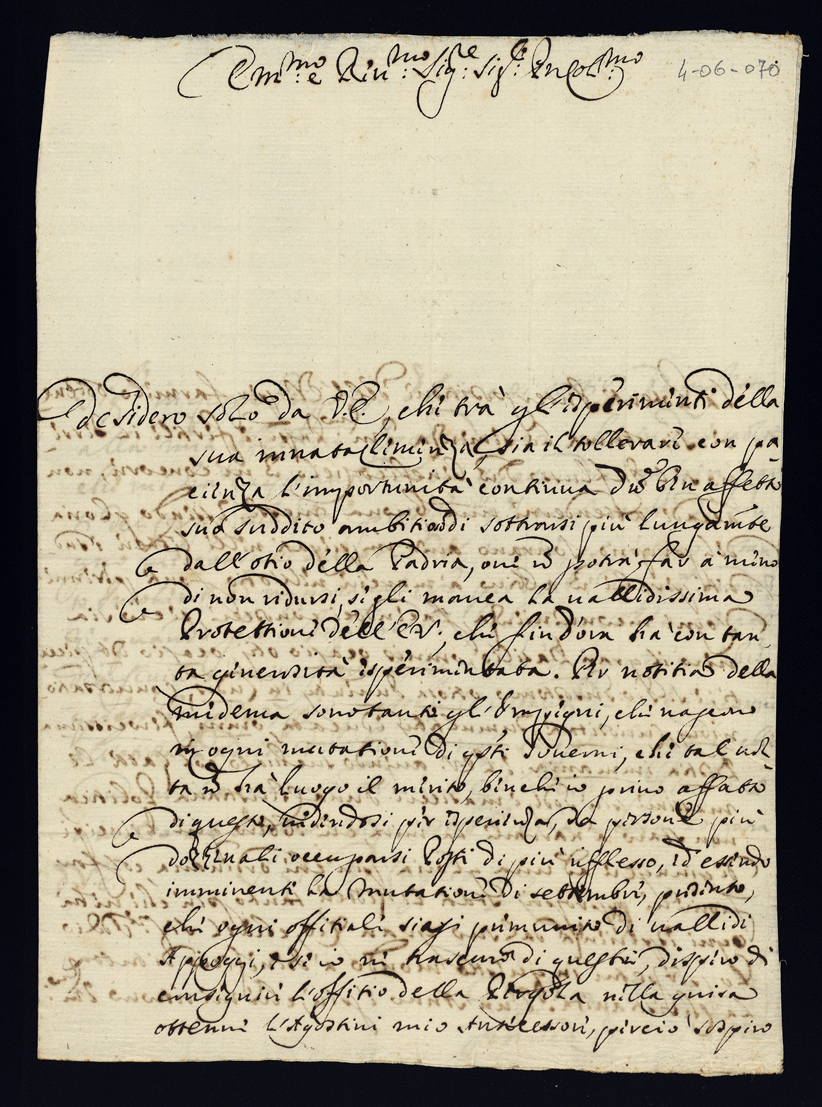 Em:mo e Rev:mo Sig:re Sig:r Pn Col:mo
4-06-070
Desidero solo da V.E., che trà gl'esperimenti della
sua innata clemenza, sia il tollerare con pa
cienza l'importunità continua d'un ben affetto
suo suddito ambitioso di sottrarsi più lungam:te
dall'otio della Padria, ove n potrà far à meno
di non ridursi, se gli manca la vallidissima
Protettione dell'E.V., che sin d'ora hà con tan
ta generosità esperimentata. Per notitia della
medema sono tanti gl'Impegni, che nascono
in ogni mutatione di q:sti Governi, che tal vol
ta n hà luogo il merito, benche io privo affato
di questo, vedendosi per esperienza, da persone più
dozzinali occuparsi Posti di più riflesso, ed essendo
imminente la Mutatione di settembre, prevento,
che ogni offitiale siasi premunito di vallidi
Appoggi, e se io ne trascuro di questi, dispero di
conseguire l'offitio della Pergola nella guisa
ottenne l'Agostini mio Antecessore, perciò sospiro